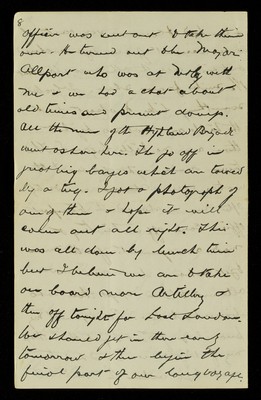 8
officer was sent out to take them
over. He turned out to be Major
Allport who was at Netley with
me & we had a chat about
old times and present doings.
All the men of the Highland Brigade
went ashore here. They go off in
great big barges which are towed
by a tug. I got a photograph of
one of them & hope it will
come out all right. This
was all done by lunch time
but I believe we are to take
on board more Artillery &
then off tonight for East London.
We should get in there early
tomorrow & then begin the
final part of our long voyage.